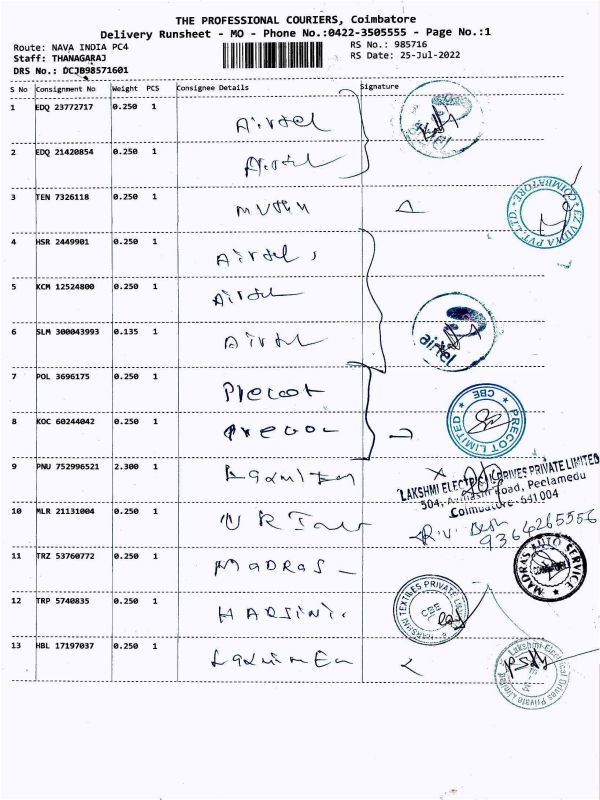 THE PROFESSIONAL COURIERS, Coimbatore
Delivery Runsheet - MO - Phone No.:0422-3505555 - Page No.:1
Route: NAVA INDIA PC4
RS No.: 985716
Staff: THANAGARAJ
RS Date: 25-Jul-2022
DRS No.: DCJB98571601
S No Consignment No Weight PCS Consignee Details Signature
1 EDQ 23772717 0.250 1 Airtel
2 EDQ 21420854 0.250 1 Airtel
3 TEN 7326118 0.250 1 MUTHU
EZ VIDYA PVT. LTD. COIMBATORE
4 HSR 2449901 0.250 1 Airtel
5 KCM 12524800 0.250 1 Airtel
6 SLM 300043993 0.135 1 Airtel
airtel
7 POL 3696175 0.250 1 Precot
8 KOC 60244042 0.250 1 Precot
PRECOT LIMITED CBE
9 PNU 752996521 2.300 1
LAKSHMI ELECTRICAL DRIVES PRIVATE LIMITED
504, Avinashi Road, Peelamedu
Coimbatore-641004
10 MLR 21131004 0.250 1
R.V.
9364265556
11 TRZ 53760772 0.250 1 MADRAS
MADRAS AUTO SERVICE COIMBATORE
12 TRP 5740835 0.250 1 HARSINI.
HARSHNI TEXTILES PRIVATE LIMITED CBE
13 HBL 17197037 0.250 1
Lakshmi Electrical Drives Private Limited